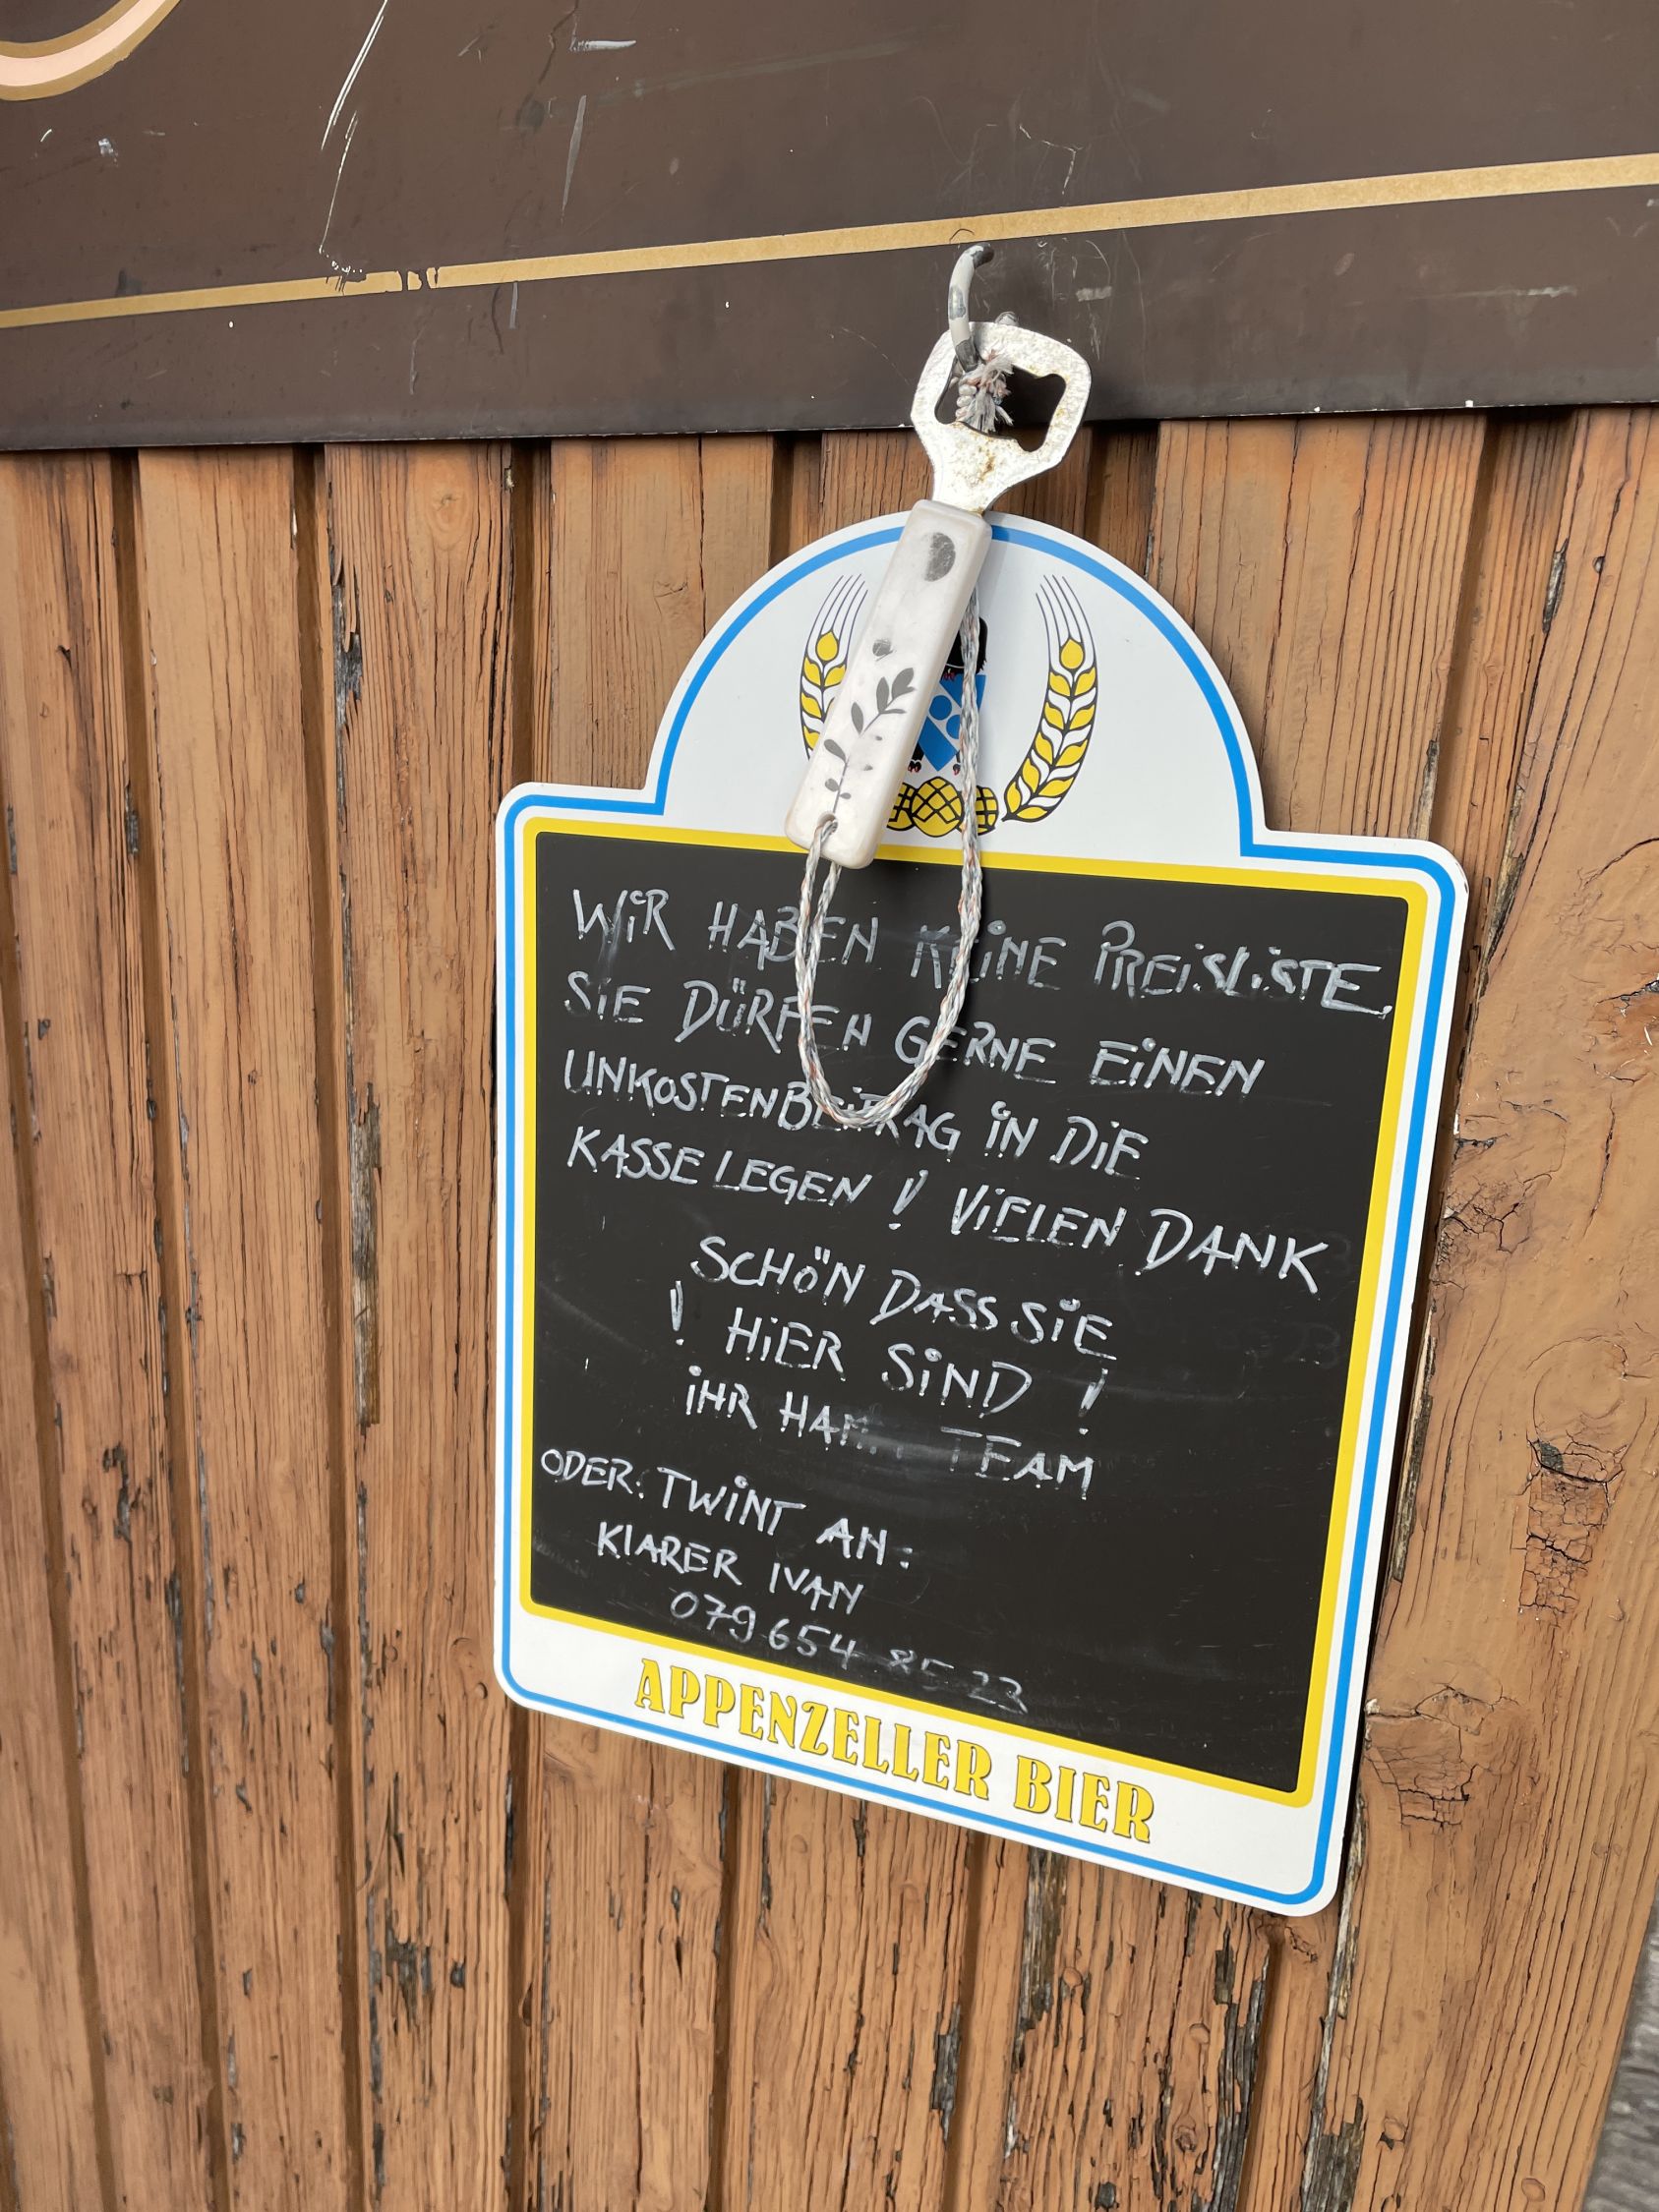 WIR HABEN KEINE PREISLISTE.
SIE DÜRFEN GERNE EINEN
UNKOSTENBEITRAG IN DIE
KASSE LEGEN! VIELEN DANK
SCHÖN DASS SIE
! HIER SIND !
IHR TEAM
ODER: TWINT AN:
KLARER IVAN
079 654 85 23
APPENZELLER BIER